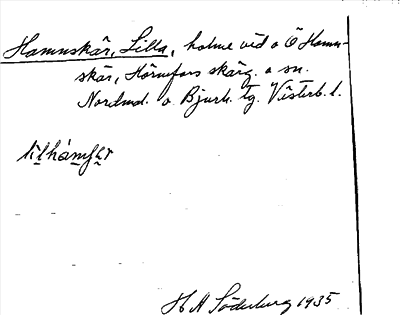 Hamnskär, Lilla, holme vid o Ö Hamn-
skär, Hörnefors skärg. o sn.
Nordmal. o. Bjurh. tg. Västerb. l.
H A Söderberg 1935